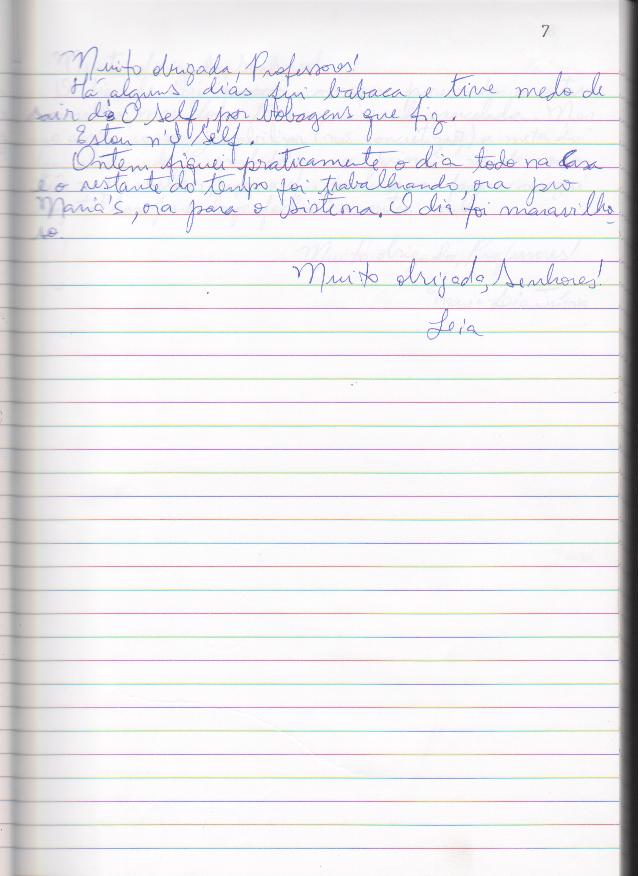 7
Muito obrigada, Professores!
Há alguns dias fui babaca e tive medo de
sair dá O Self, por bobagens que fiz.
Estou n'O Self.
Ontem fiquei praticamente o dia todo na Casa
e o restante do tempo foi trabalhando, ora pro
Maria's, ora para o Sistema. O dia foi maravilho-
so.
Muito obrigada, Senhores!
Leia